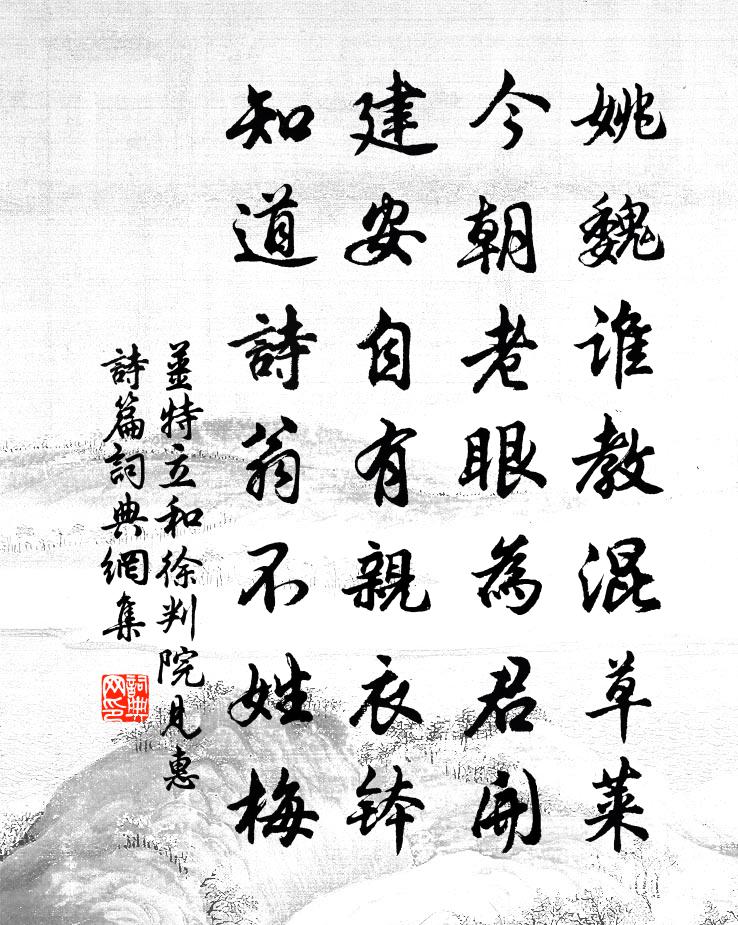 姚魏谁教混草莱
今朝老眼為君開
建安自有親衣鉢
知道詩翁不姓梅
姜特立和徐判院見惠
詩篇詞典網集
詞典
网印